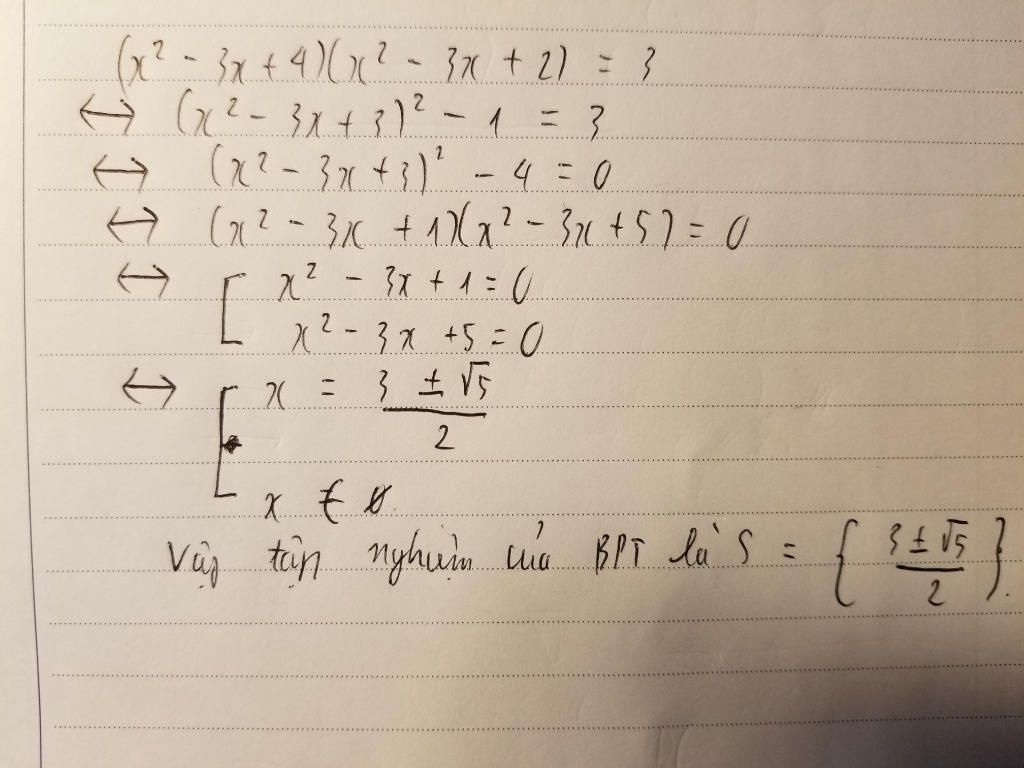 (x² - 3x + 4)(x² - 3x + 2) = 3
↔ (x² - 3x + 3)² - 1 = 3
↔ (x² - 3x + 3)² - 4 = 0
↔ (x² - 3x + 1)(x² - 3x + 5) = 0
↔ [ x² - 3x + 1 = 0
x² - 3x + 5 = 0
↔ [ x = (3 ± √5)/2
x ∈ ∅.
Vậy tập nghiệm của BPT là S = { (3 ± √5)/2 }.